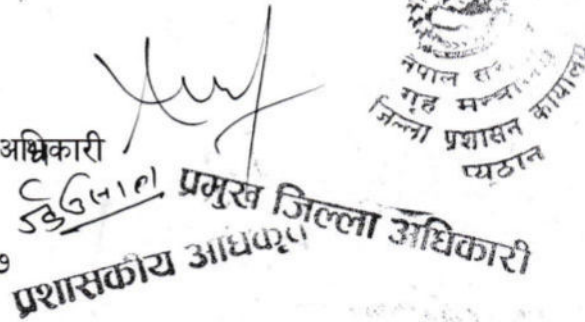 नेपाल सर
गृह मन्त्रालय
जिल्ला प्रशासन कार्यालय
प्यूठान
अधिकारी
प्रमुख जिल्ला अधिकारी
७
प्रशासकीय अधिकृत